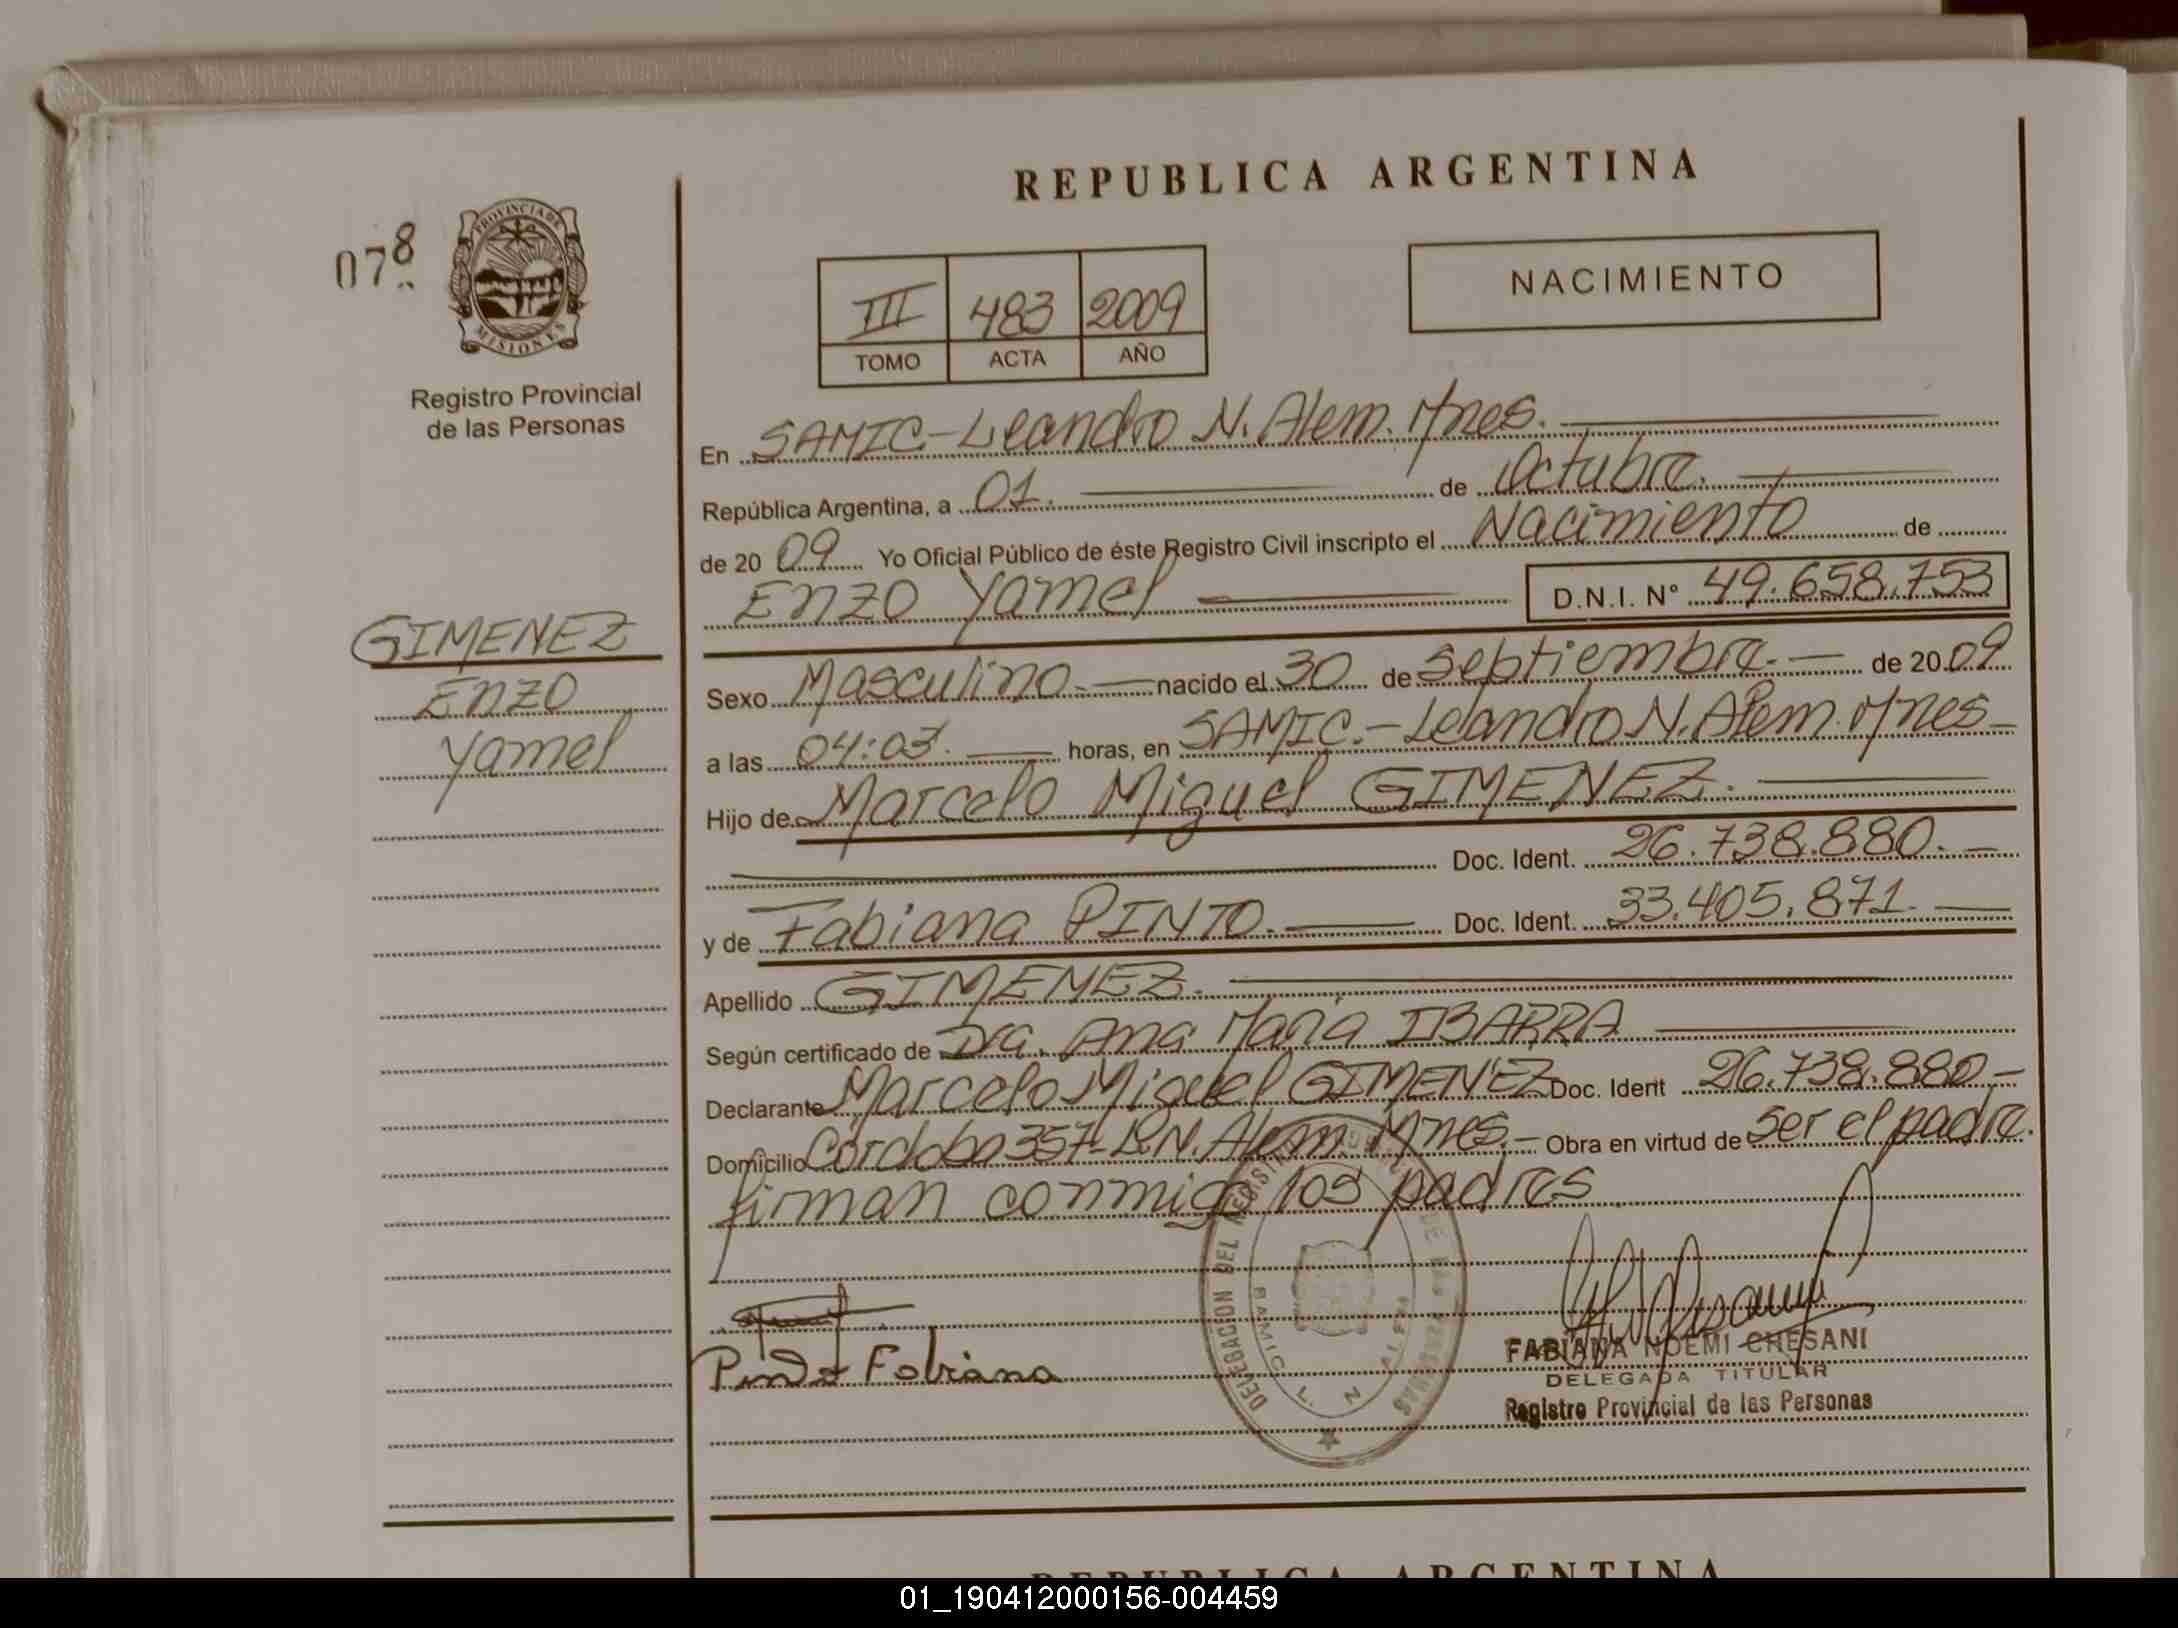 REPUBLICA ARGENTINA
078
PROVINCIA DE
MISIONES
NACIMIENTO
III 483 2009
TOMO ACTA AÑO
Registro Provincial
de las Personas
En SAMIC-Leandro N. Alem. Mnes.
República Argentina, a 01. de Octubre.
de 20 09 Yo Oficial Público de éste Registro Civil inscripto el Nacimiento de
Enzo Yamel D.N.I. N° 49.658.753
GIMENEZ
Enzo
Yamel
Sexo Masculino.- nacido el 30 de Septiembre.- de 20 09
a las 04:03. horas, en SAMIC.-Leandro N. Alem. Mnes-
Hijo de Marcelo Miguel GIMENEZ.
Doc. Ident. 26.738.880.-
y de Fabiana PINTO.- Doc. Ident. 33.405.871.-
Apellido GIMENEZ.
Según certificado de Dra. Ana Maria IBARRA
Declarante Marcelo Miguel GIMENEZ Doc. Ident 26.738.880.-
Domicilio Cordoba 357-L.N. Alem. Mnes.- Obra en virtud de ser el padre.
firman conmigo los padres
DELEGACION DEL REGISTRO DE LAS PERSONAS
SAMIC L. N. ALEM
Pinto Fabiana
FABIANA NOEMI CHESANI
DELEGADA TITULAR
Registro Provincial de las Personas
REPUBLICA ARGENTINA
01_190412000156-004459